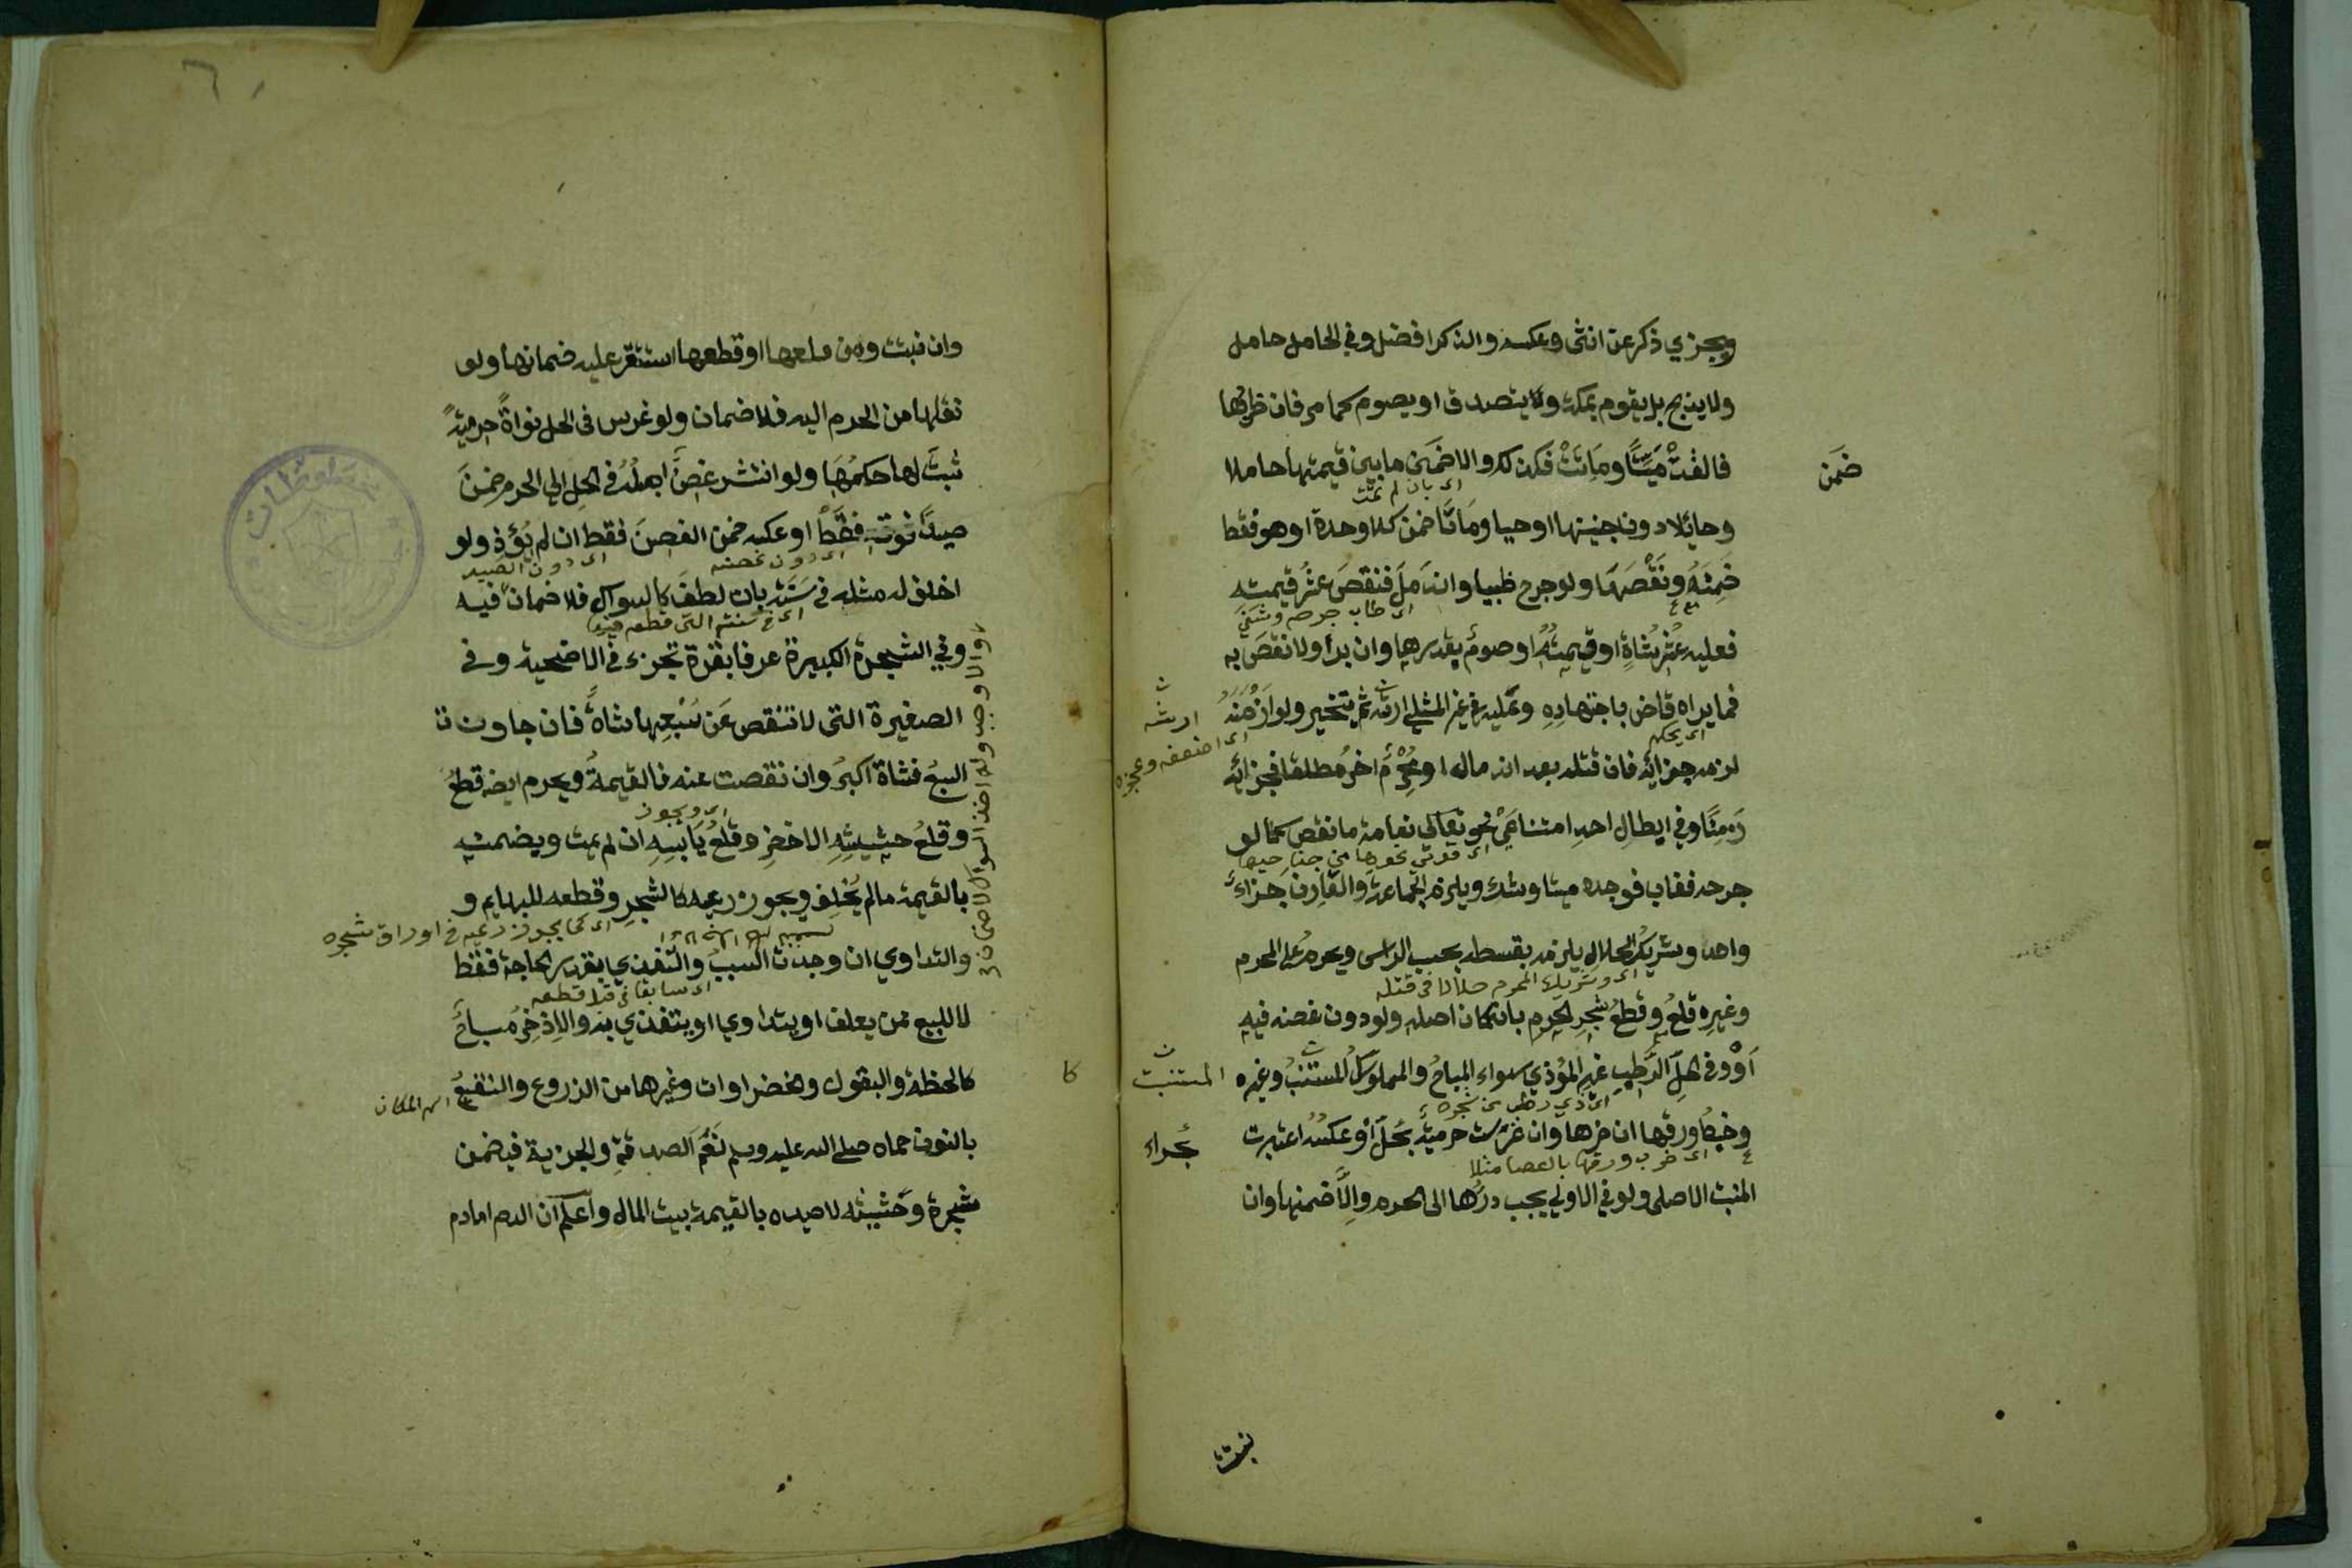 ويجزي ذكر عن انثى وعكسه والذكر افضل وفي الحامل حامل
ولا يذبح بل يقوم بمكة ويتصدق او يصوم كما مر فان ضربها
فالقت ميتا وماتت فكذلك والا ضمن ما بين قيمتها حاملا
ضمن
اي بان لم تمت
وحائلا دون جنينها او حيا وماتا ضمن كلا وحده او هو فقط
ضمنه ونقصها ولو جرح ظبيا واندمل فنقص عشر قيمته
اي طاب جرحه وشفي
فعليه عشر شاة او قيمته او صوم بقدرها وان برأ ولا نقص به
فما يراه قاض باجتهاده وعليه في غير المثلي ارشه ثم يتخير ولو ازمنه
ارشه
اي يحكم
اي اضعفه وعجزه
لزمه جزائه فان قتله بعد اندماله او محرم اخر مطلقا فجزائه
زمنا وفي ابطال احد امتناعي نحو نعامة ما نقص كما لو
اي قوتي نحوها من جناحيها
جرحه فغاب فوجده ميتا وشك ويلزم الجماعة والقارن جزاء
واحد وشريك الحلال يلزمه بقسطه بحسب الراس ويحرم على المحرم
اي وشريك المحرم حلالا في قتله
وغيره قلع وقطع شجر الحرم بان كان اصله ولو دون غصنه فيه
او وفي الحل الرطب غير المؤذي سواء المباح والمملوك المستنبت وغيره
المستنبت
وخبط ورقها ان ضرها وان غرست حرمية بحل او عكسه اعتبرت
اي ضرب ورقها بالعصا مثلا
المنبت الاصلي ولو في الاولى يجب ردها الى الحرم والا ضمنها وان
نبتت
وان نبتت ومن قلعها او قطعها استقر عليه ضمانها ولو
نقلها من الحرم اليه فلا ضمان ولو غرس في الحل نواة حرمية
ثبت لها حكمها ولو انتشر غصن اصله في الحل الى الحرم ضمن
صيدا فوقه فقط او عكسه ضمن الغصن فقط ان لم يؤذ ولو
اي دون غصنه
اي دون الصيد
اخلف له مثله في سنته بان لطف كالسواك فلا ضمان فيه
اي في سنته التي قطعه فيها
وفي الشجرة الكبيرة عرفا بقرة تجزء في الاضحية وفي
الصغيرة التي لا تنقص عن سبعها شاة فان جاوزت
السبع فشاة اكبر وان نقصت عنه فالقيمة ويحرم ايضا قطع
اي ويجوز
وقلع حشيشه الاخضر وقلع يابسه ان لم يمت ويضمنه
بالقيمة ما لم يخلف ويجوز رعيه كالشجر وقطعه للبهايم و
اي كما يجوز رعيه في اوراق شجره
والتداوي ان وجدت السبب والتغذي بقدر الحاجة فقط
اي سابقا في قبل قطعه
لا للبيع ممن يعلف او يتداوي او يتغذي به والاذخر مباح
كالحنطة والبقول والخضراوات وغيرها من الزروع والنقيع
كا
اسم المكان
بالنون حماه صلى الله عليه وسلم لنعم الصدقة والجزية فيضمن
شجره وحشيشه لا صيده بالقيمة بيت المال واعلم ان الدم اما دم